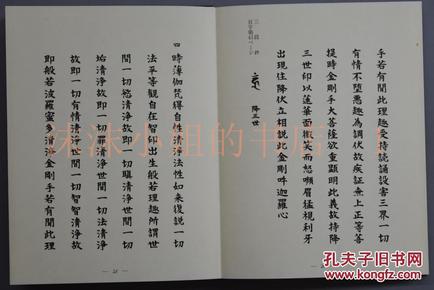 手若有聞此理趣受持讀誦設害三界一切
有情不墮惡趣為調伏故疾證無上正等菩
提時金剛手大菩薩欲重顯明此義故持降
三世印以蓮華面微笑而怒顰眉猛視利牙
出現住降伏立相說此金剛吽迦羅心
降三世
三段鈔
四 時薄伽梵得自性清淨法性如來復說一切
法平等觀自在智印出生般若理趣所謂世
間一切慾清淨故即一切瞋清淨世間一切
垢清淨故即一切罪清淨世間一切法清淨
故即一切有情清淨世間一切智智清淨故
即般若波羅蜜多清淨金剛手若有聞此理
— 25 —
妹妹小姐的书店
孔夫子旧书网